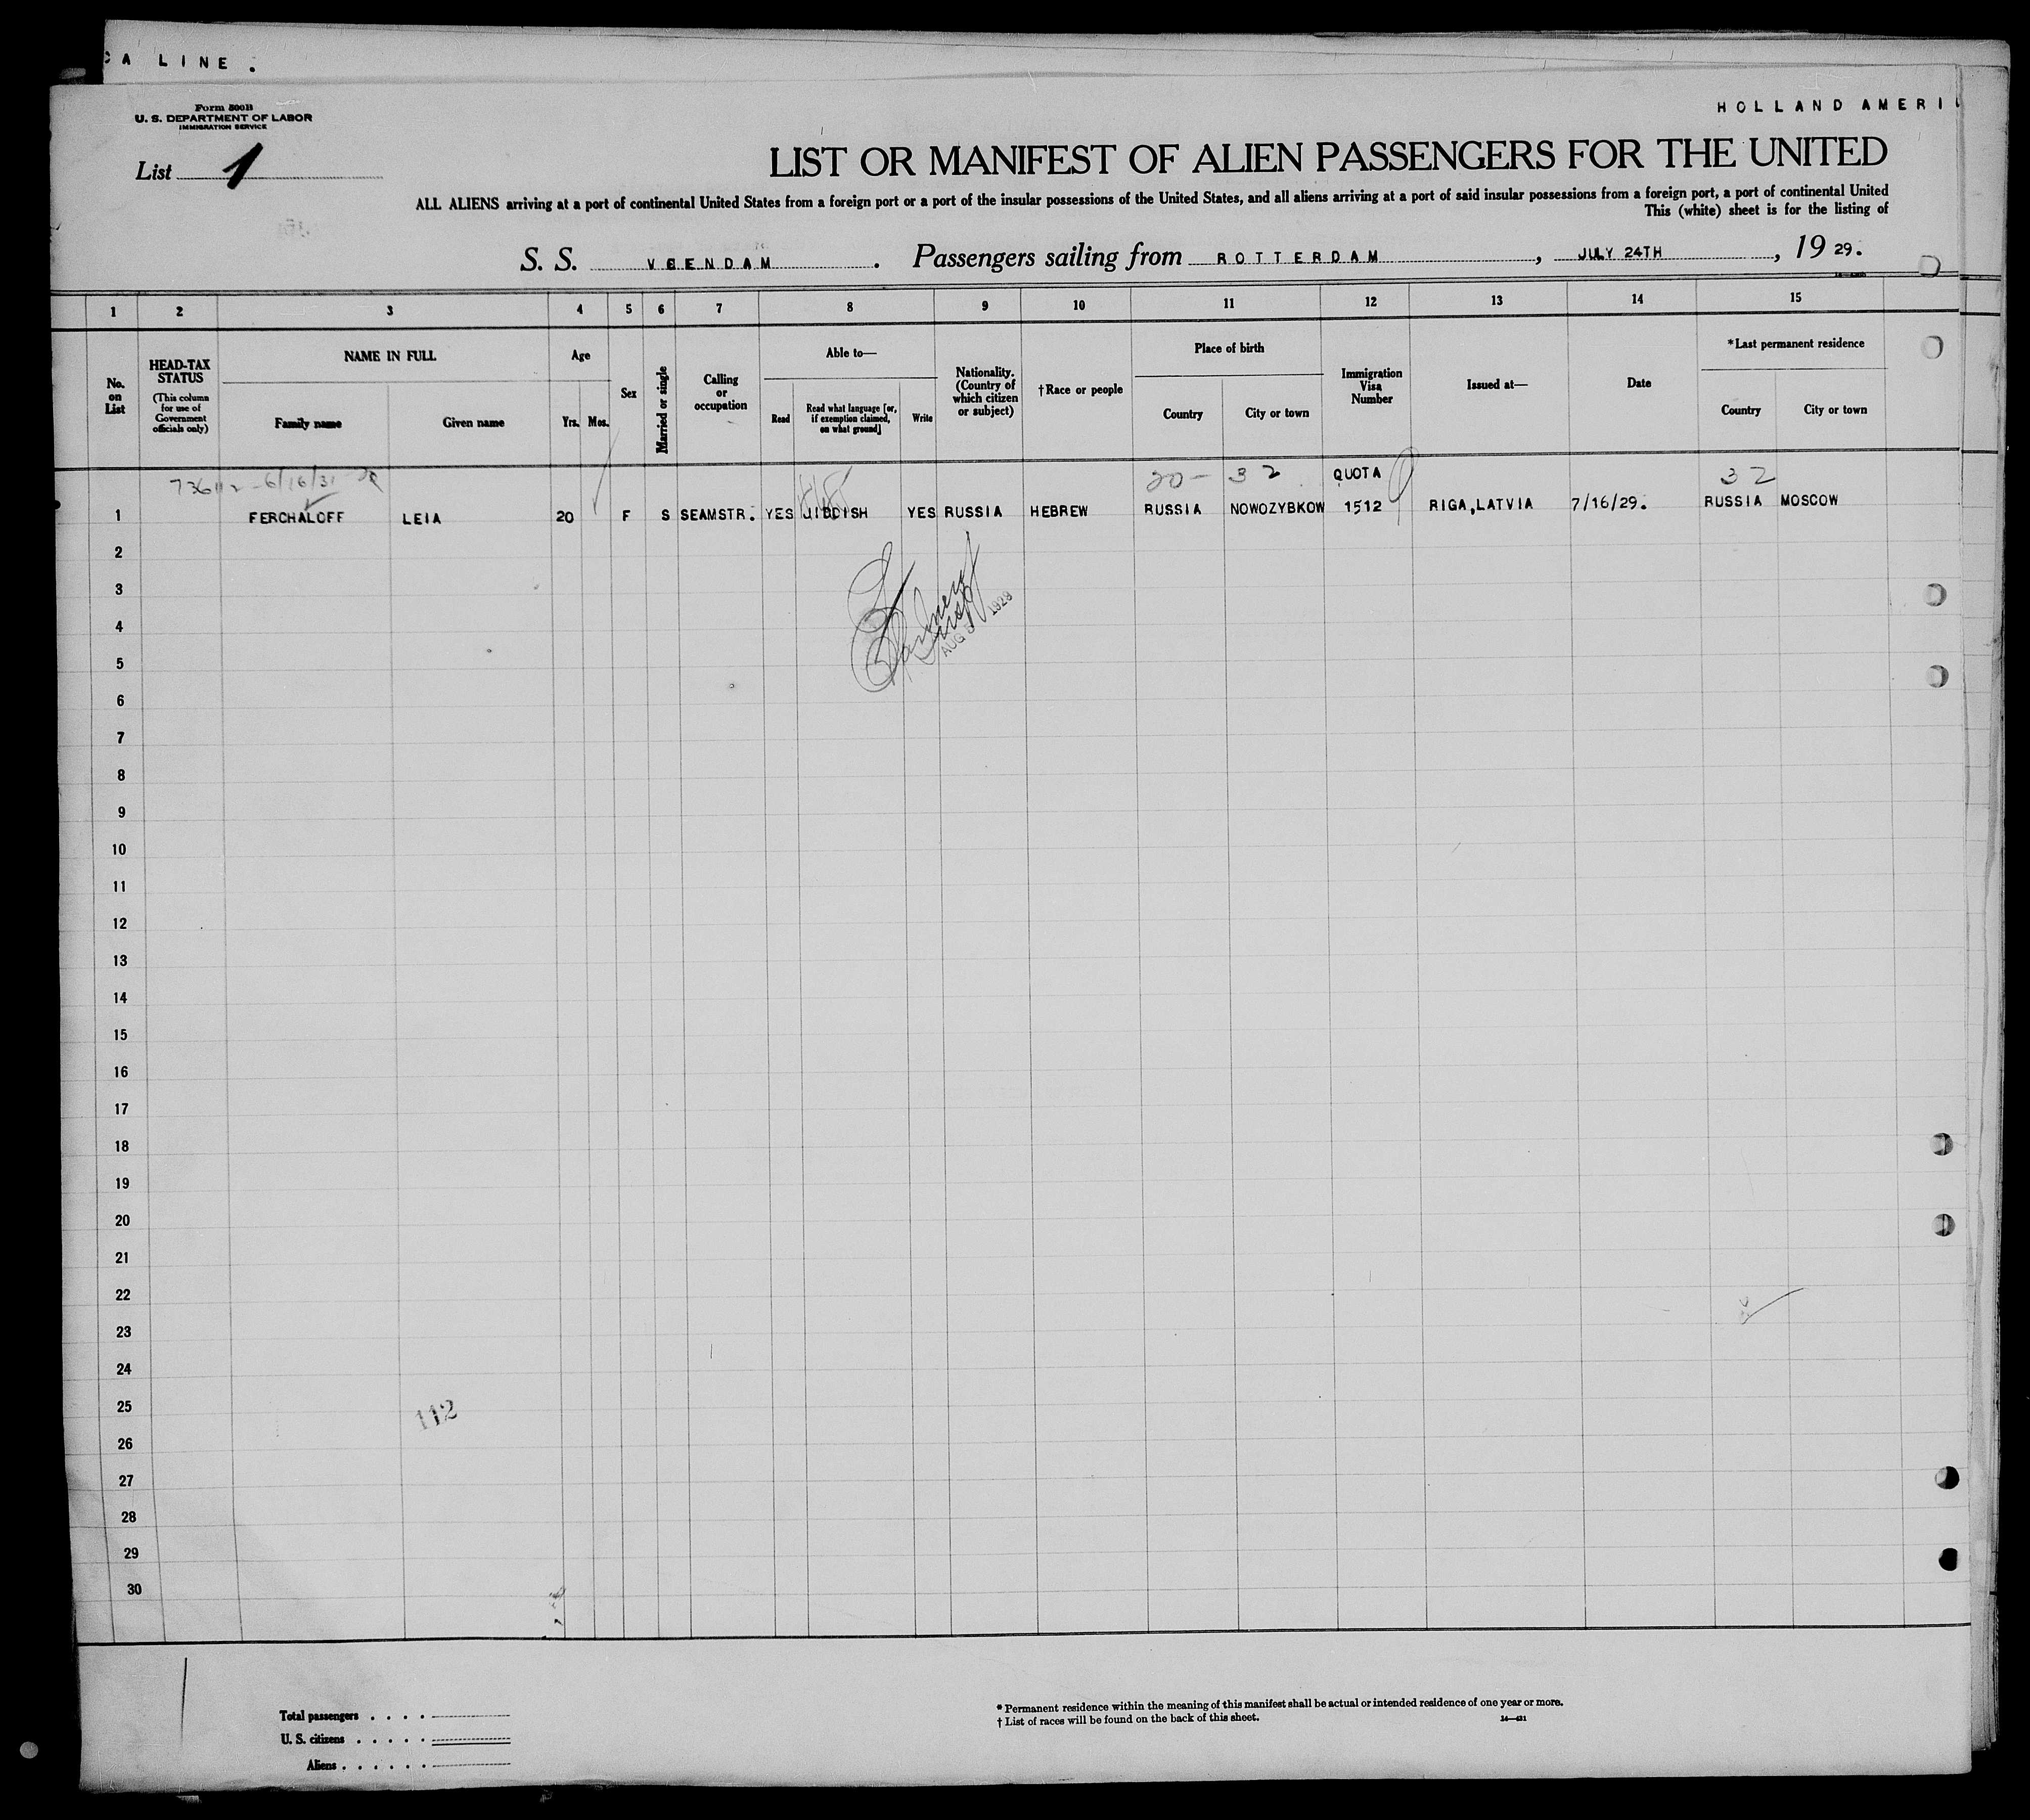 CA LINE.
Form 500B
U. S. DEPARTMENT OF LABOR
IMMIGRATION SERVICE
HOLLAND AMERI
List 1
LIST OR MANIFEST OF ALIEN PASSENGERS FOR THE UNITED
ALL ALIENS arriving at a port of continental United States from a foreign port or a port of the insular possessions of the United States, and all aliens arriving at a port of said insular possessions from a foreign port, a port of continental United
This (white) sheet is for the listing of
S. S. VEENDAM . Passengers sailing from ROTTERDAM , JULY 24TH , 19 29.
1 2 3 4 5 6 7 8 9 10 11 12 13 14 15
No. on List
HEAD-TAX STATUS
(This column for use of Government officials only)
NAME IN FULL
Family name Given name
Age
Yrs. Mos.
Sex
Married or single
Calling or occupation
Able to—
Read
Read what language [or, if exemption claimed, on what ground]
Write
Nationality. (Country of which citizen or subject)
†Race or people
Place of birth
Country City or town
Immigration Visa Number
Issued at—
Date
*Last permanent residence
Country City or town
6/16/31 20 - 32 QUOTA 32
1 FERCHALOFF LEIA 20 F S SEAMSTR. YES JIDDISH YES RUSSIA HEBREW RUSSIA NOWOZYBKOW 1512 RIGA,LATVIA 7/16/29. RUSSIA MOSCOW
2
3
AUG 5 1929
4
5
6
7
8
9
10
11
12
13
14
15
16
17
18
19
20
21
22
23
24
25
112
26
27
28
29
30
Total passengers . . . .
U. S. citizens . . . . .
Aliens . . . . . .
* Permanent residence within the meaning of this manifest shall be actual or intended residence of one year or more.
† List of races will be found on the back of this sheet.
14—431